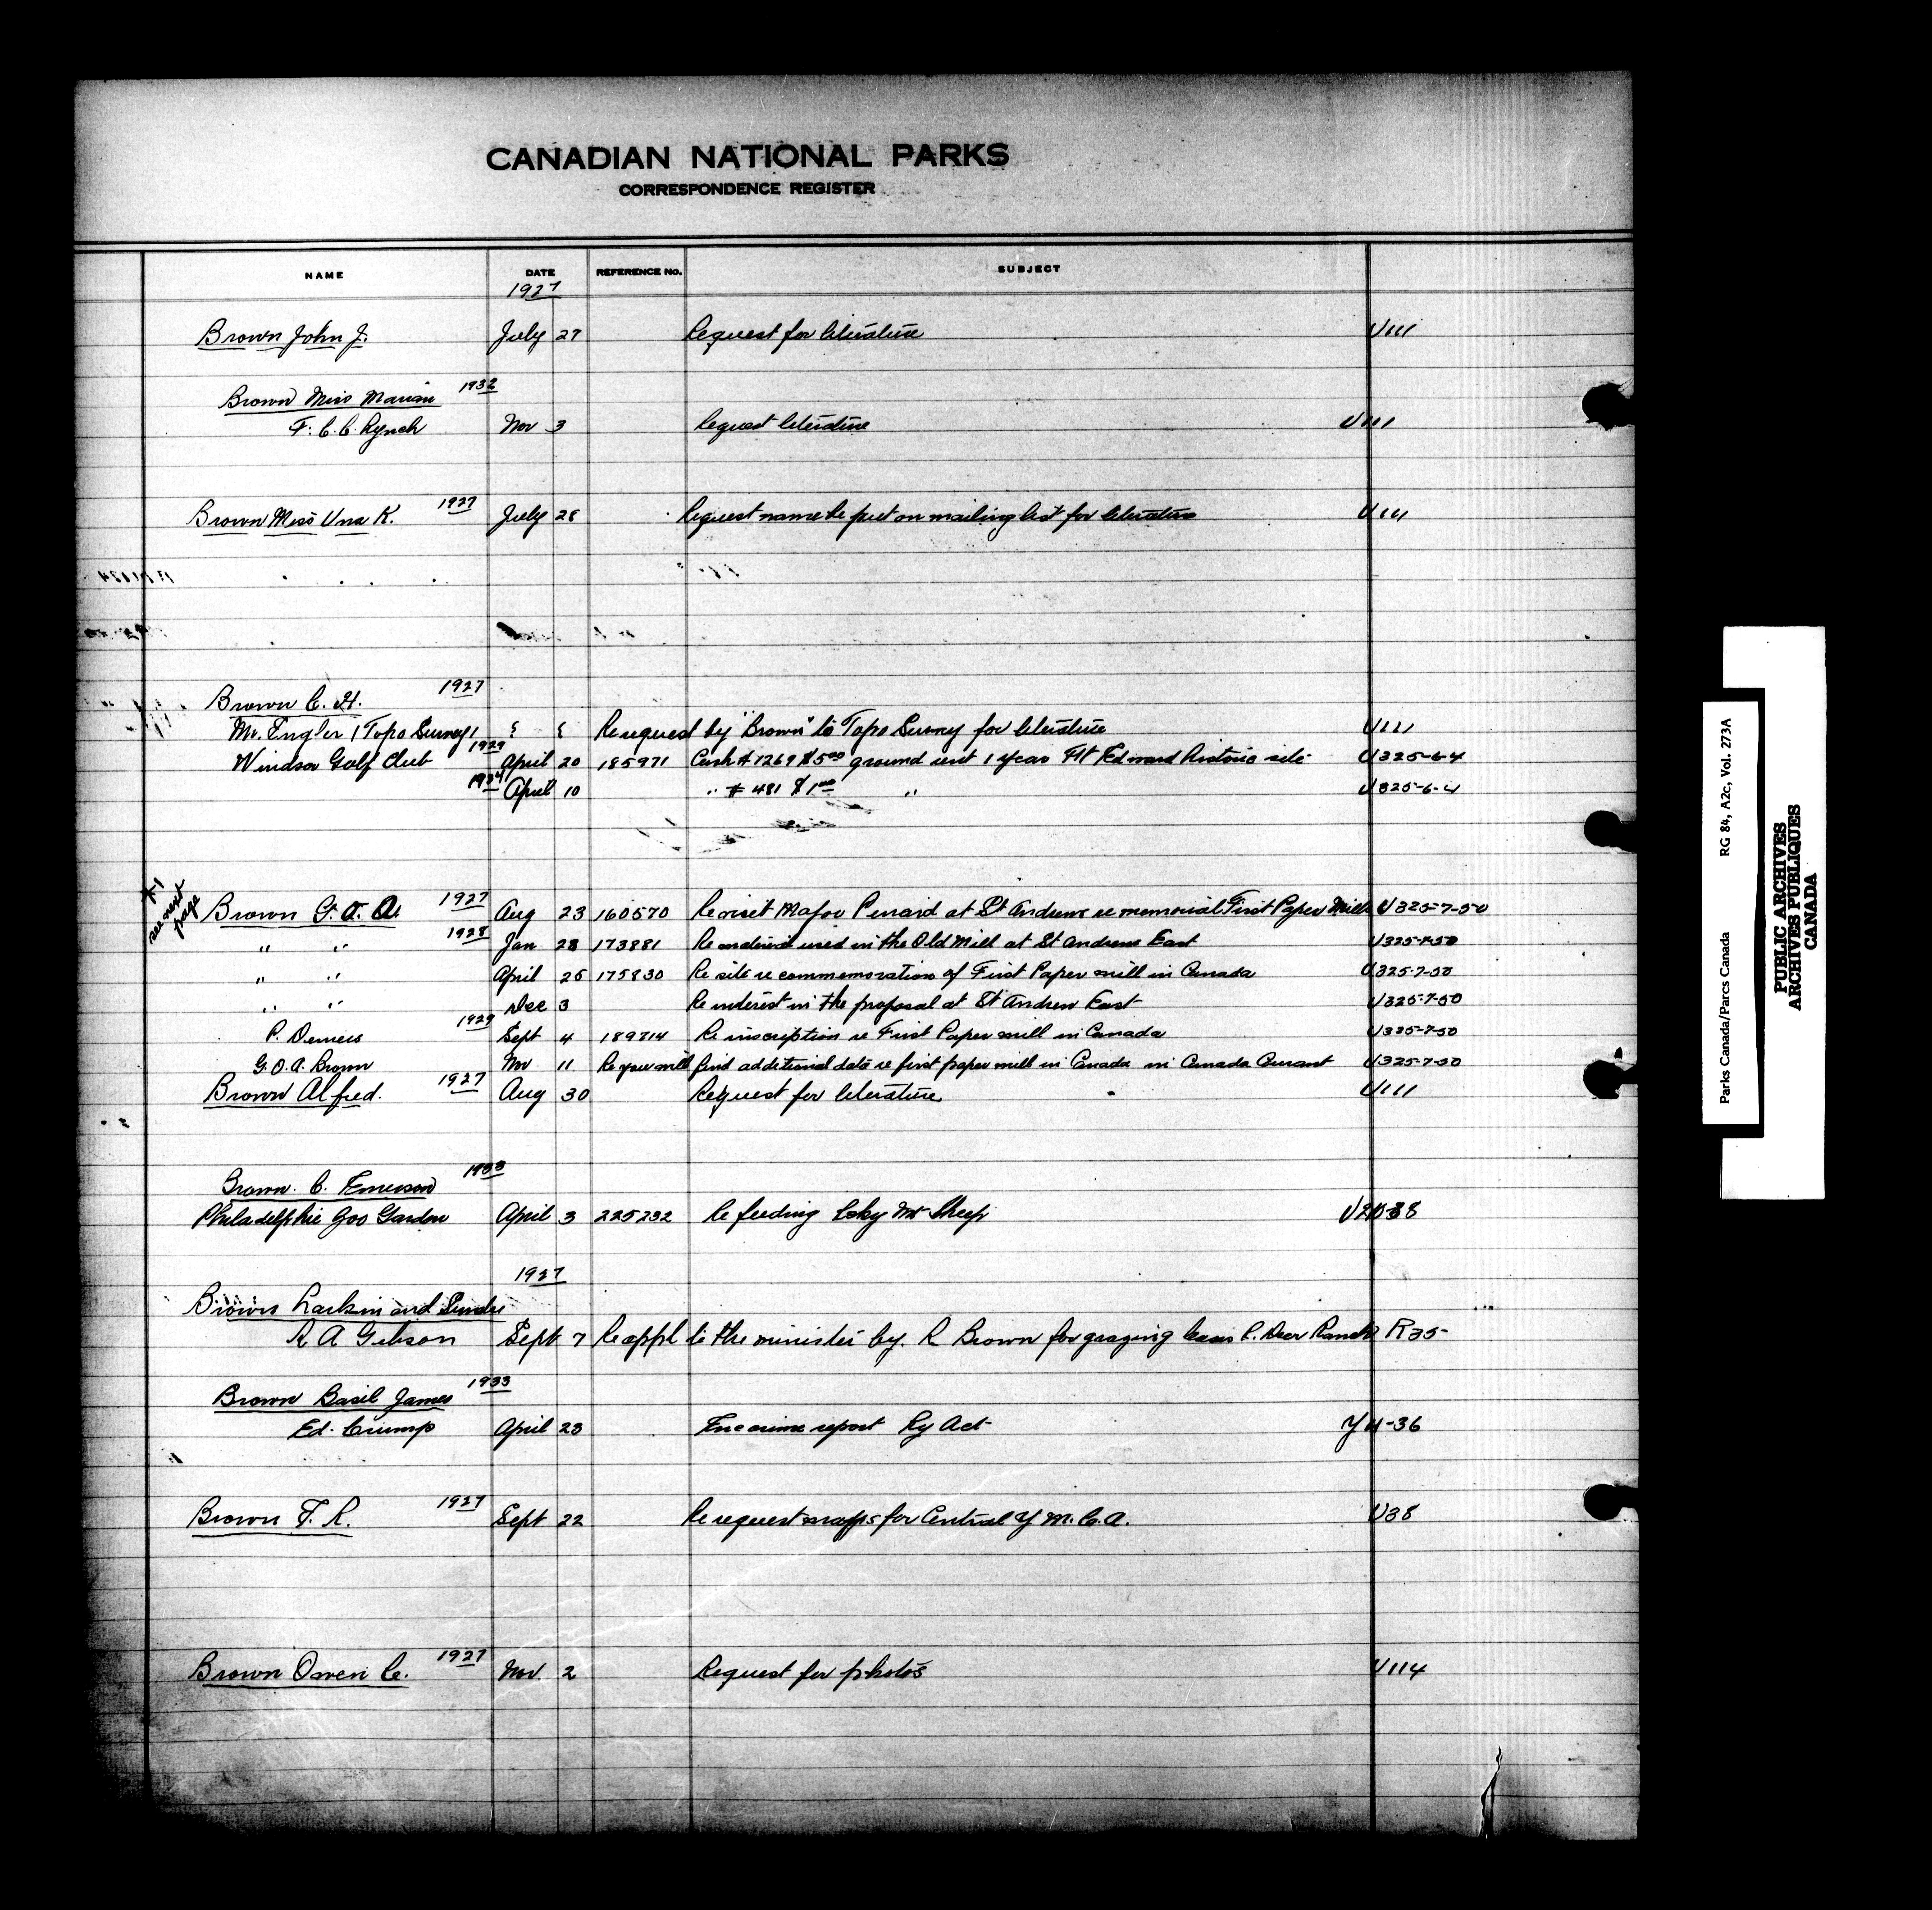 CANADIAN NATIONAL PARKS
CORRESPONDENCE REGISTER
NAME DATE REFERENCE No. SUBJECT
1927
Brown John J. July 27 Request for literature U111
Brown Miss Marian 1932
F. C. C. Lynch Nov 3 Request literature U111
Brown Miss Una K. 1927 July 28 Request name be put on mailing list for literature U111
Brown C. H. 1927
Mr. Engler (Topo Survey) Re request by "Brown" to Topo Survey for literature U111
Windsor Golf Club 1929 April 20 185971 Cash # 1269 $5.00 ground rent 1 year Ft Edward Historic site U325-6-4
1934 April 10 " # 481 $1.00 " U325-6-4
*1 see next page
Brown G. O. A. 1927 Aug 23 160570 Re visit Major Penard at St Andrews re memorial First Paper Mill U325-7-50
" " 1928 Jan 28 173881 Re used in the Old Mill at St Andrews East U325-7-50
" " April 25 175830 Re site re commemoration of First Paper mill in Canada U325-7-50
" " Dec 3 Re interest in the proposal at St Andrew East U325-7-50
P. Demers 1929 Sept 4 189714 Re inscription re First Paper mill in Canada U325-7-50
G. O. A. Brown Nov 11 Re you will find additional data re first paper mill in Canada in Canada Courant U325-7-50
Brown Alfred. 1927 Aug 30 Request for literature U111
Brown C. Emerson 1933
Philadelphia Zoo Garden April 3 225232 Re feeding Rocky Mt Sheep
1927
Brown Larkin and
R A Gibson Sept 7 Re appl to the minister by. R Brown for grazing lease R. Deer Ranch R35-
Brown Basil James 1933
Ed. Crump April 23 Enc crime report Ry Act Y U-36
Brown F. R. 1927 Sept 22 Re request maps for Central Y M. C. A. U38
Brown Owen C. 1927 Nov. 2 Request for photos U114
Parks Canada/Parcs Canada RG 84, A2c, Vol. 273A
PUBLIC ARCHIVES
ARCHIVES PUBLIQUES
CANADA